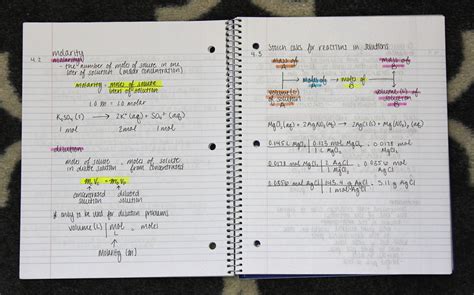 4.2 molarity
molarity
the number of moles of solute in one
liter of solution (molar concentration)
molarity = moles of solute
liters of solution
1.0 M = 1.0 molar
K₂SO₄ (s) → 2K⁺ (aq) + SO₄²⁻ (aq)
1 mol 2 mol 1 mol
dilution
moles of solute = moles of solute
in dilute solution from concentrated
M₁V₁ = M₂V₂
concentrated diluted
solution solution
* only to be used for dilution problems
volume (L) | mol = moles
L
molarity (M)
4.5 Stoich calcs for reactions in solutions
mass of A
mass of B
moles of A → moles of B
volume(s) of solution A
volume(s) of solution B
MgCl₂ (aq) + 2AgNO₃ (aq) → 2AgCl(s) + Mg(NO₃)₂ (aq)
MgCl₂ = 0.0178 mol
1L MgCl₂
0.0178 mol MgCl₂ | 2 AgCl = 0.0356 mol
1 MgCl₂ AgCl
0.0356 mol AgCl | 143.4 g AgCl = 5.11 g AgCl
1 mol AgCl